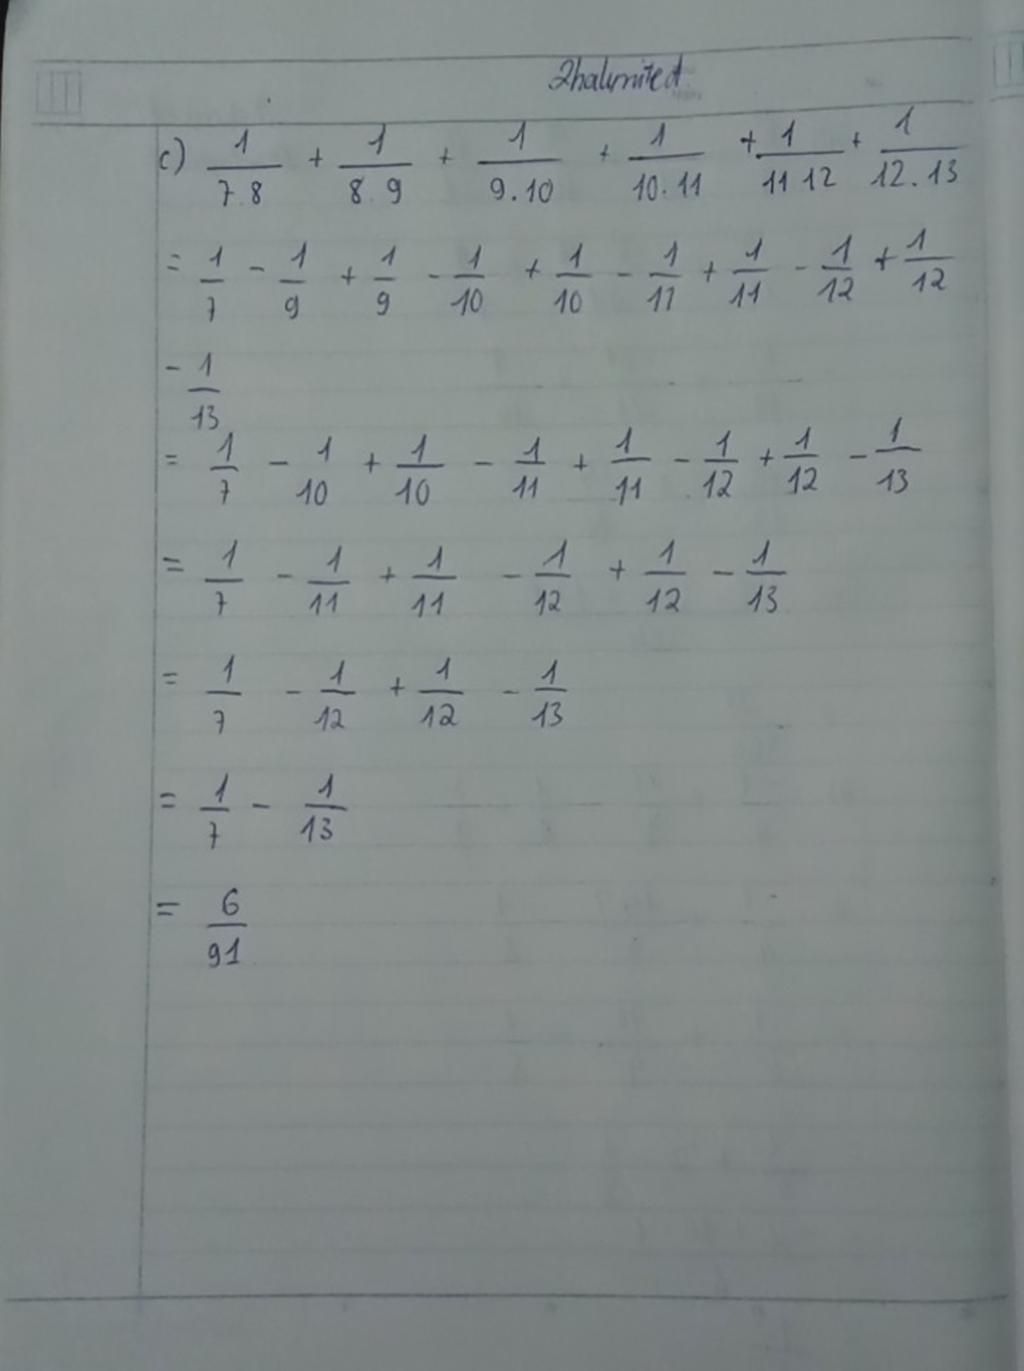 2halımited
c) 1/7.8 + 1/8.9 + 1/9.10 + 1/10.11 + 1/11 12 + 1/12.13
= 1/7 - 1/9 + 1/9 - 1/10 + 1/10 - 1/11 + 1/11 - 1/12 + 1/12
- 1/13
= 1/7 - 1/10 + 1/10 - 1/11 + 1/11 - 1/12 + 1/12 - 1/13
= 1/7 - 1/11 + 1/11 - 1/12 + 1/12 - 1/13
= 1/7 - 1/12 + 1/12 - 1/13
= 1/7 - 1/13
= 6/91